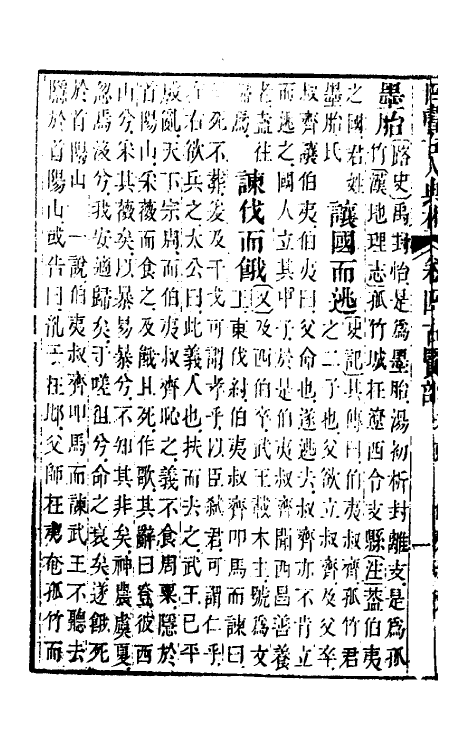 四書古人典林 卷四古賢部
墨胎(路史)禹封怡是為墨胎湯初析封離支是為孤
竹(漢地理志)孤竹城在遼西令支縣(注)葢伯夷
之國君姓 讓國而逃(史記)其傳曰伯夷叔齊孤竹君
墨胎氏 之二子也父欲立叔齊及父卒
叔齊讓伯夷伯夷曰父命也遂逃去叔齊亦不肯立
而逃之國人立其中子於是伯夷叔齊聞西昌善養
老盍往 諫伐而餓(又)及西伯卒武王載木主號為文
焉 王東伐紂伯夷叔齊叩馬而諫曰
父死不葬爰及干戈可謂孝乎以臣弑君可謂仁乎
左右欲兵之太公曰此義人也扶而去之武王已平
殷亂天下宗周而伯夷叔齊恥之義不食周粟隱於
首陽山采薇而食之及餓且死作歌其辭曰登彼西
山兮采其薇矣以暴易暴兮不知其非矣神農虞夏
忽焉沒兮我安適歸矣于嗟徂兮命之衰矣遂餓死
於首陽山 一說伯夷叔齊叩馬而諫武王不聽去
隱於首陽山或告曰胤子在郕父師在夷奄孤竹而